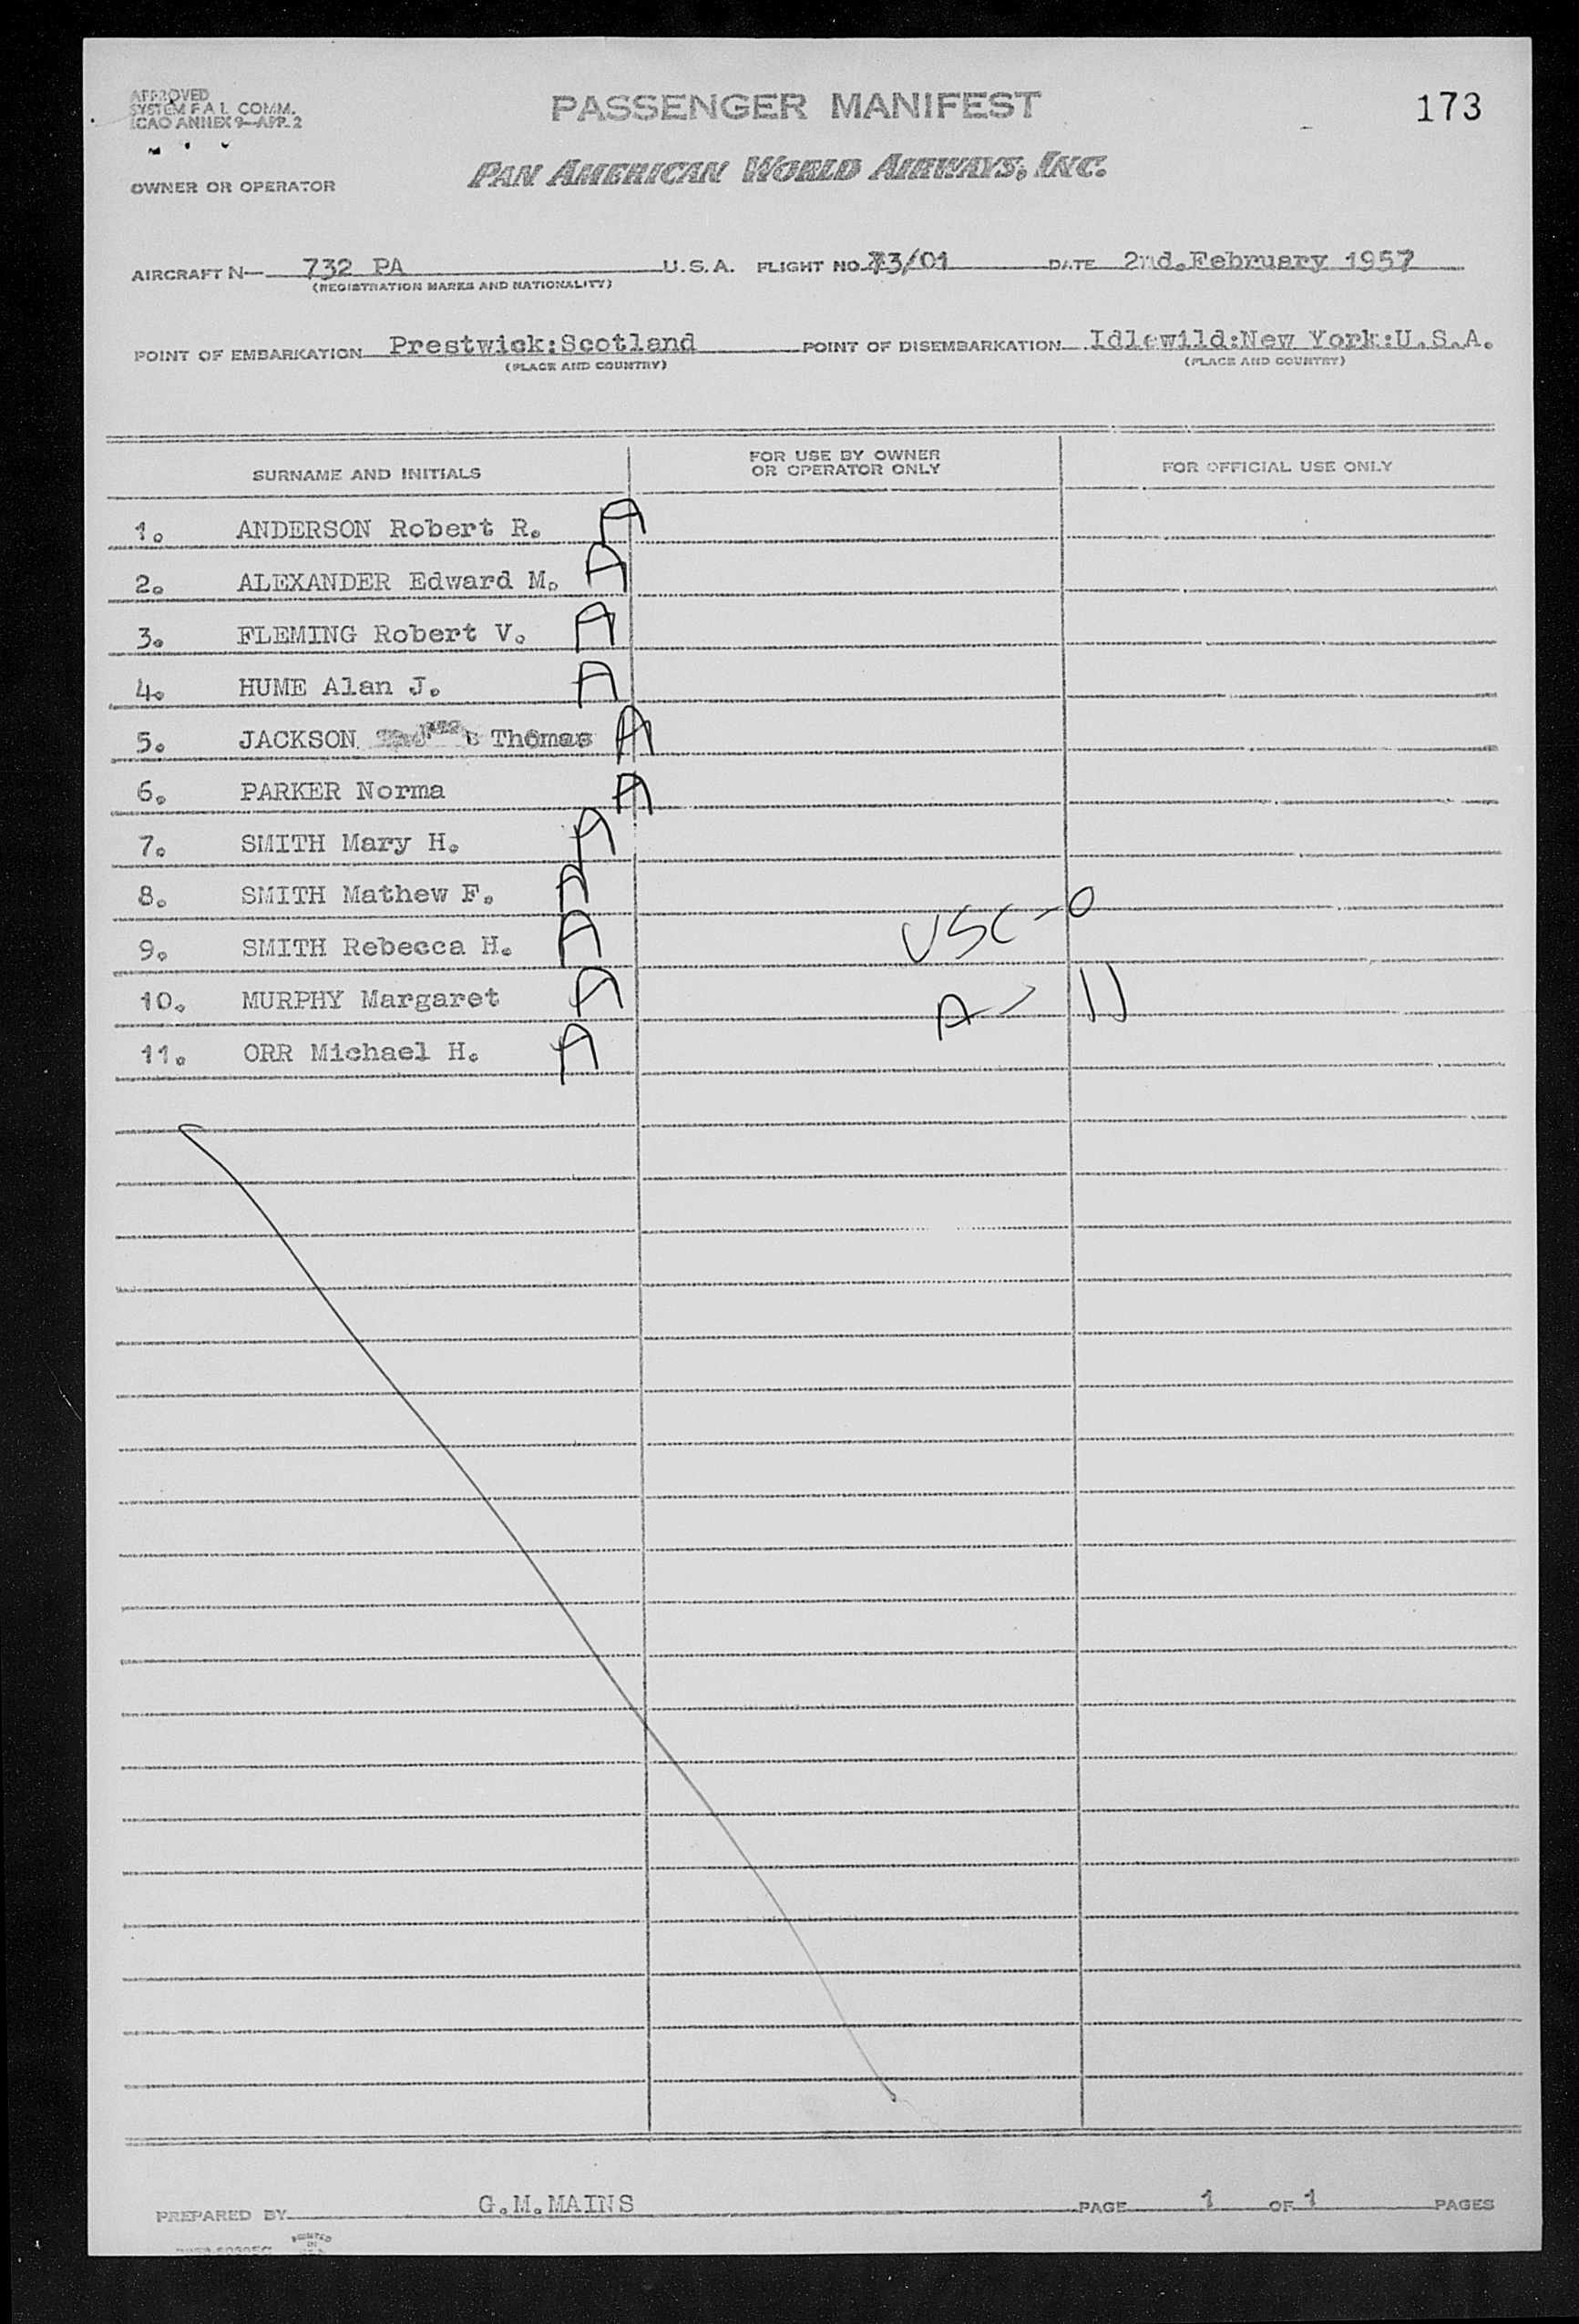 APPROVED
SYSTEM F.A.L. COMM.
ICAO ANNEX 9—APP. 2
PASSENGER MANIFEST
173
OWNER OR OPERATOR
PAN AMERICAN WORLD AIRWAYS, INC.
AIRCRAFT N— 732 PA U.S.A. FLIGHT NO. 73/01 DATE 2nd.February 1957
(REGISTRATION MARKS AND NATIONALITY)
POINT OF EMBARKATION Prestwick:Scotland POINT OF DISEMBARKATION Idlewild:New York:U.S.A.
(PLACE AND COUNTRY) (PLACE AND COUNTRY)
SURNAME AND INITIALS
FOR USE BY OWNER
OR OPERATOR ONLY
FOR OFFICIAL USE ONLY
1. ANDERSON Robert R. A
2. ALEXANDER Edward M. A
3. FLEMING Robert V. A
4. HUME Alan J. A
5. JACKSON Thomas A
6. PARKER Norma A
7. SMITH Mary H. A
8. SMITH Mathew F. A
9. SMITH Rebecca H. A USC-0
10. MURPHY Margaret A A- 11
11. ORR Michael H. A
PREPARED BY G.M.MAINS PAGE 1 OF 1 PAGES
PRINTED
IN